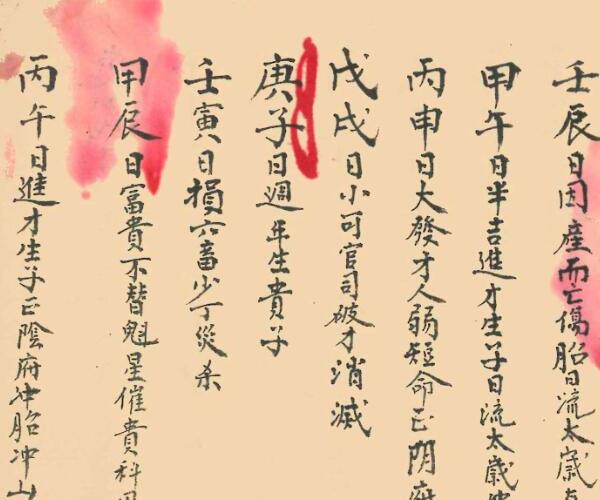 壬辰日因産而亡傷胎日流太歲
甲午日半吉進才生子日流太歲冲
丙申日大發才人弱短命正阴府
戊戌日小可官司破才消滅
庚子日週年生貴子
壬寅日損六畜少丁災杀
甲辰日富貴不替魁星催貴科
丙午日進才生子正陰府冲胎冲山